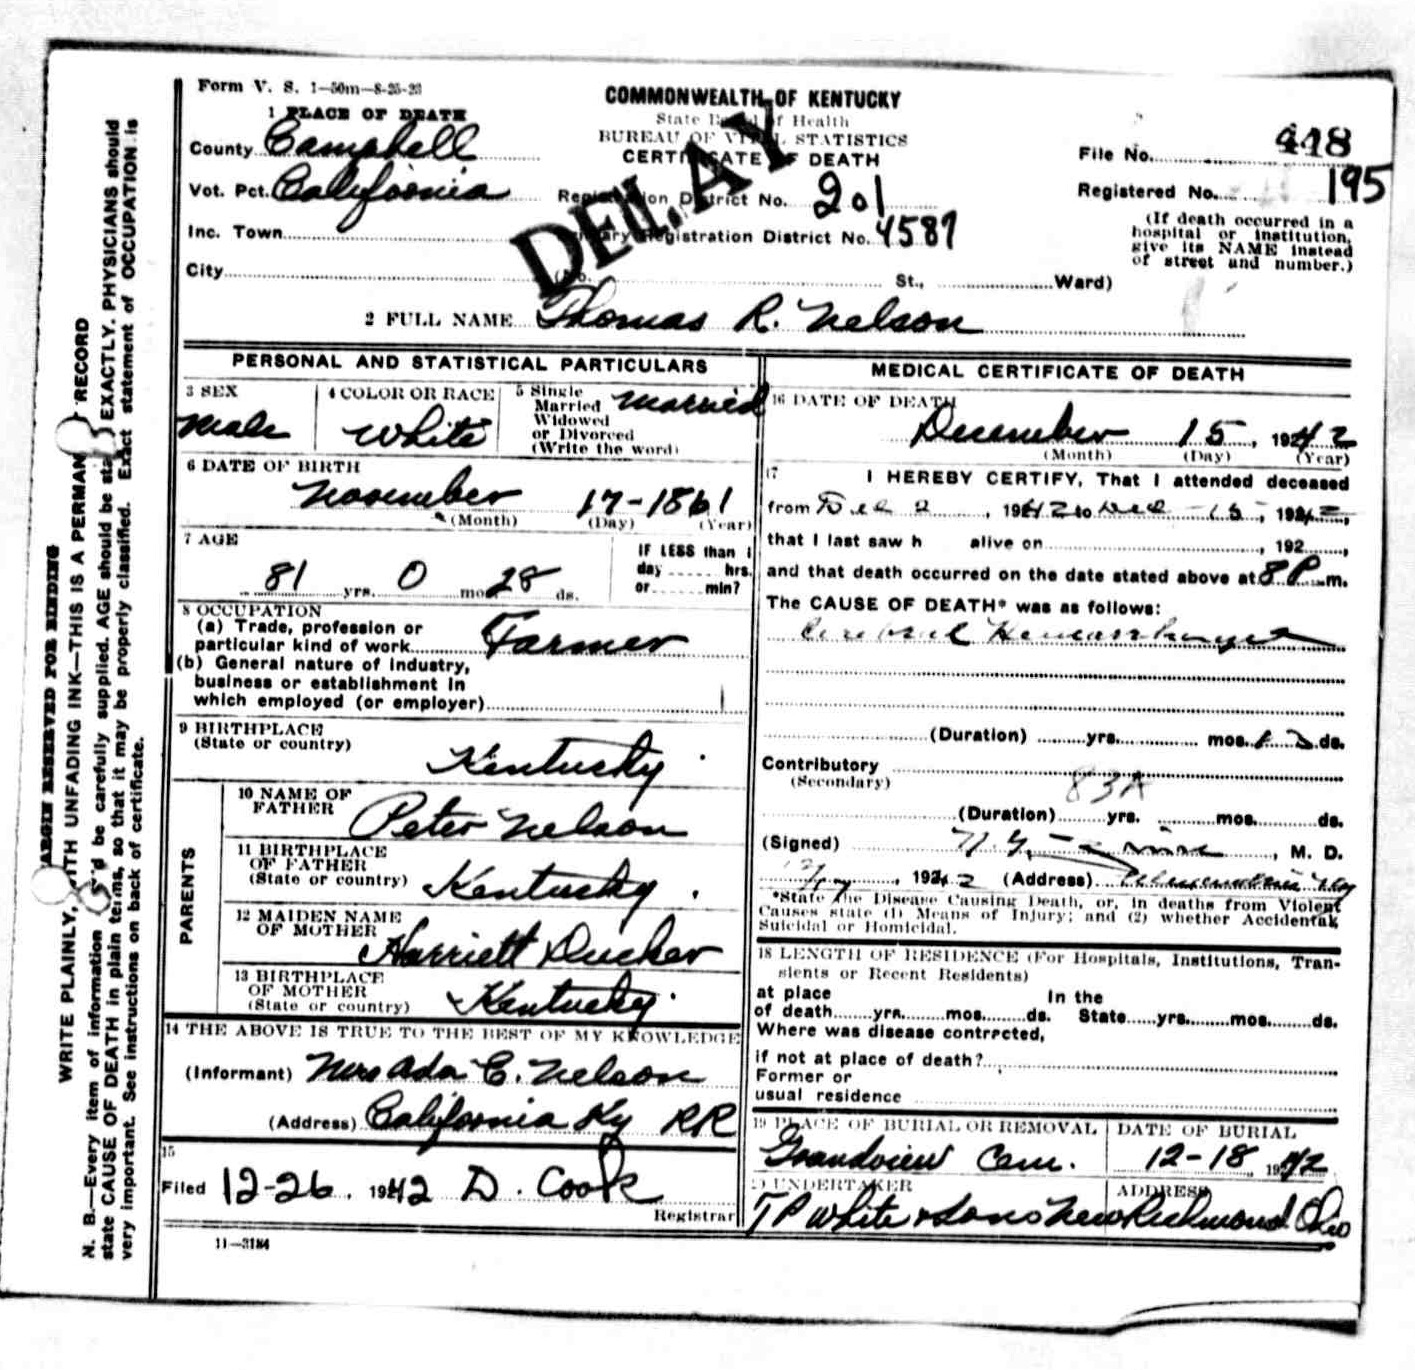 Form V. S. 1—50m—8-25-23
COMMONWEALTH OF KENTUCKY
State Board of Health
BUREAU OF VITAL STATISTICS
CERTIFICATE OF DEATH
DELAY
1 PLACE OF DEATH
County Campbell
Vot. Pct. California
Inc. Town
City
Registration District No. 201
Primary Registration District No. 4587
(No. St., Ward)
File No. 448
Registered No. 195
(If death occurred in a
hospital or institution,
give its NAME instead
of street and number.)
2 FULL NAME Thomas R. Nelson
PERSONAL AND STATISTICAL PARTICULARS
3 SEX
Male
4 COLOR OR RACE
White
5 Single
Married
Widowed
or Divorced
(Write the word)
married
6 DATE OF BIRTH
November 17-1861
(Month) (Day) (Year)
7 AGE
81 yrs. 0 mos. 28 ds.
IF LESS than 1
day hrs.
or min?
8 OCCUPATION
(a) Trade, profession or
particular kind of work Farmer
(b) General nature of industry,
business or establishment in
which employed (or employer)
9 BIRTHPLACE
(State or country)
Kentucky
PARENTS
10 NAME OF
FATHER
Peter Nelson
11 BIRTHPLACE
OF FATHER
(State or country) Kentucky
12 MAIDEN NAME
OF MOTHER
Harriett Ducker
13 BIRTHPLACE
OF MOTHER
(State or country) Kentucky
14 THE ABOVE IS TRUE TO THE BEST OF MY KNOWLEDGE
(Informant) Mrs Ada C. Nelson
(Address) California Ky RR
15
Filed 12-26, 1942 D. Cook
Registrar
11—3184
MEDICAL CERTIFICATE OF DEATH
16 DATE OF DEATH
December 15, 1942
(Month) (Day) (Year)
17
I HEREBY CERTIFY, That I attended deceased
from Dec 2, 1942 to Dec - 15, 1942,
that I last saw h alive on , 192 ,
and that death occurred on the date stated above at 8 P m.
The CAUSE OF DEATH* was as follows:
Cerebral Hemorrhage
(Duration) yrs. mos. ds.
Contributory
(Secondary)
83A
(Duration) yrs. mos. ds.
(Signed) , M. D.
, 1942 (Address)
*State the Disease Causing Death, or, in deaths from Violent
Causes state (1) Means of Injury; and (2) whether Accidental,
Suicidal or Homicidal.
18 LENGTH OF RESIDENCE (For Hospitals, Institutions, Tran-
sients or Recent Residents)
at place In the
of death yrs. mos. ds. State yrs. mos. ds.
Where was disease contrected,
if not at place of death?
Former or
usual residence
19 PLACE OF BURIAL OR REMOVAL
Grandview Cem.
DATE OF BURIAL
12-18 1942
20 UNDERTAKER
T P White & Sons
ADDRESS
New Richmond Ohio
MARGIN RESERVED FOR BINDING
WRITE PLAINLY, WITH UNFADING INK—THIS IS A PERMANENT RECORD
N. B.—Every item of information should be carefully supplied. AGE should be stated EXACTLY. PHYSICIANS should
state CAUSE OF DEATH in plain terms, so that it may be properly classified. Exact statement of OCCUPATION is
very important. See instructions on back of certificate.